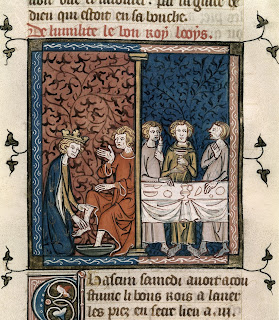 la grace de
dieu qui estoit en sa bouche.
De lumilite le bon roy looys.
Chascun samedi avoit acou
stume li bons rois a laver
les piez en secr lieu a .iii.